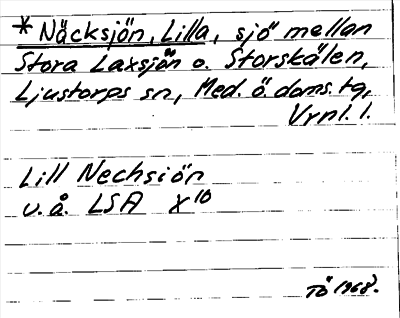 * Näcksjön, Lilla, sjö mellan
Stora Laxsjön o. Storskälen,
Ljustorps sn, Med. ö doms. tg,
Vrnl. l.
Lill Nechsiön
u. å. LSA X10
TÖ 1968.